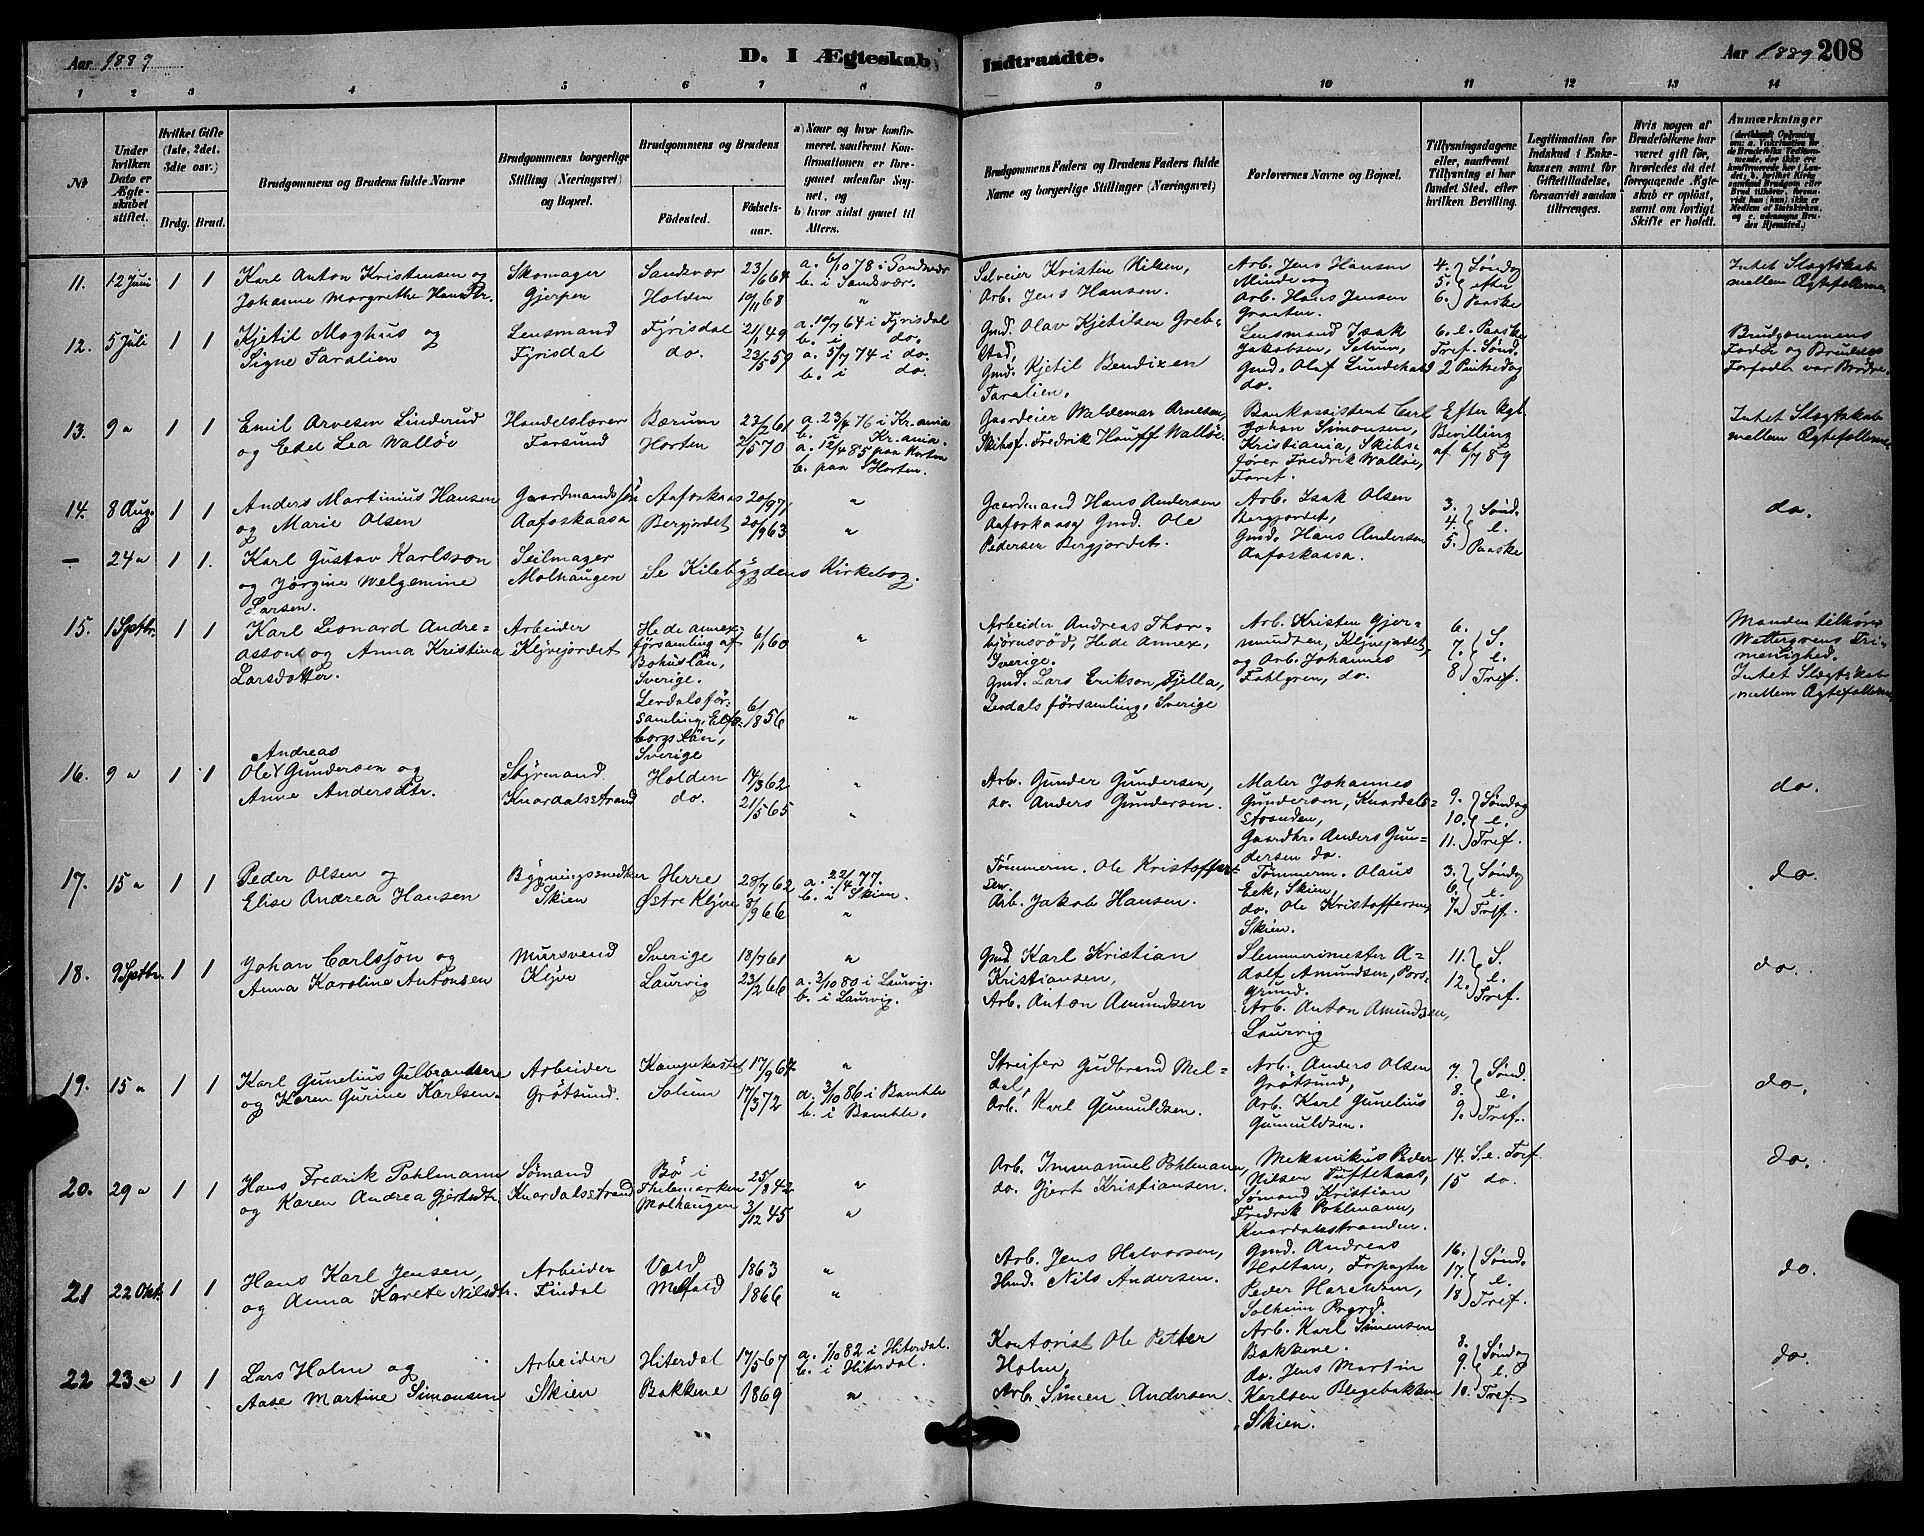 Aar 1889
D. I Ægteskab
Indtraadte.
Aar 1889 208
1 2 3 4 5 6 7 8 9 10 11 12 13 14
No
Under hvilken Dato er Ægteskabet stiftet.
Hvilket Gifte (1ste, 2det, 3die osv.)
Brdg. Brud.
Brudgommens og Brudens fulde Navne
Brudgommens borgerlige Stilling (Næringsvei) og Bopæl.
Brudgommens og Brudens
Fødested.
Fødselsaar.
a) Naar og hvor konfirmeret, saafremt Konfirmationen er foregaaet udenfor Sognet, og
b) hvor sidst gaaet til Alters.
Brudgommens Faders og Brudens Faders fulde Navne og borgerlige Stillinger (Næringsvei)
Forlovernes Navne og Bopæl.
Tillysningsdagene eller, saafremt Tillysning ei har fundet Sted, efter hvilken Bevilling.
Legitimation for Indskud i Enkekassen samt for Giftetilladelse, forsaavidt saadan tiltrænges.
Hvis nogen af Brudefolkene har været gift før, hvorledes da det foregaaende Ægteskab er opløst, samt om lovligt Skifte er holdt.
Anmærkninger
11. 12 Juni 1 1 Karl Anton Kristensen og
Johanne Margrethe Hansdtr.
Skomager
Gjerpen
Sandsvær
Holden
23/6 64
19/11 68
a. 6/10 78 i Sandsvær
b. i Sandsvær.
"
Selveier Kristen Nilsen,
Arb. Jens Hansen.
Arb. Jens Hansen
Minde og
Arb. Hans Jensen
Graaten.
4. 5. 6. Søndag efter Paaske
Intet Slægtskab
mellem Ægtefollerne.
12. 5 Juli 1 1 Kjetil Moghus og
Signe Taralien
Lensmand
Fyrisdal
Fyrisdal
do.
21/1 49
23/5 59
a. 10/7 64 i Fyrisdal
b. i do.
a. 5/7 74 i do.
b. i do.
Gmd. Olav Kjetilsen Grebstad,
Gmd. Kjetil Bendixen
Taralien.
Lensmand Isak
Jakobsen, Setrum,
Gmd. Olaf Lundehaug
do.
6. e. Paaske
Tref. Sønd.
2 Pintsedag
Brudgommens
Fader og Brudens
Forfader var Brødre.
13. 9 " 1 1 Emil Arvesen Linderud
og Edel Lea Walløe
Handelslærer
Farsund
Bærum
Horten
23/2 61
2/5 70
a. 23/4 76 i Kr.ania
b. i Kr.ania.
a. 12/4 85 paa Horten
b. paa Horten.
Gaardeier Waldemar Arnesen,
Skibsf. Fredrik Hauff Walløe.
Bankassistent Carl
Johan Simonsen,
Kristiania, Skibsfører Fredrik Walløe,
Foret.
Efter Kgl.
Bevilling
af 6/7 89
Intet Slægtskab
mellem Ægtefollerne
14. 8 Aug. 1 1 Anders Martinius Hansen
og Marie Olsen
Gaardmandssøn
Aafoskaasa
Aafoskaas
Bergjordet
20/9 71
20/9 63
"
"
Gaardmand Hans Andersen
Aafoskaasa Gmd. Ole
Pedersen Bergjordet.
Arb. Isak Olsen
Bergjordet,
Gmd. Hans Andersen
Aafoskaasa.
3. 4. 5. Sønd. e. Paaske
do.
— 24 " 1 1. Karl Gustav Karlsson
og Jørgine Welgemine
Larsen.
Seilmager
Molhaugen
Se Kilebygdens Kirkebog.
15. 1 Septbr. 1 1 Karl Leonard Andreassont og Anna Kristina
Larsdotter.
Arbeider
Klyvejordet
Hede annexförsamling af
Bohuslän,
Sverige.
Lerdals församling, Elfsborgs län,
Sverige
6/1 60
6/1 1856
"
"
Arbeider Andreas Thorbjørnsrød, Hede Annex,
Sverige.
Gmd. Lars Erikson, Fjella,
Lerdals församling, Sverige
Arb. Kristen Gjermundsen, Klyvejordet,
og Arb. Johannes
Fahlgren, do.
6. 7. 8. S. e. Tref.
Manden tilhører
Wettergrens Frimenighed.
Intet Slægtskab
mellem Ægtefollerne
16. 9 " 1 1 Andreas
Ole Gundersen og
Anne Andersdtr.
Styrmand
Knardalsstrand
Holden
do.
14/3 62
21/5 65
"
"
Arb. Gunder Gundersen,
do. Anders Gundersen.
Maler Johannes
Gundersen, Knardalsstranden,
Gaardbr. Anders Gundersen do.
9. 10. 11. Søndag e. Tref.
do.
17. 15 " 1 1 Peder Olsen og
Elise Andrea Hansen
Bygningssnedker
Skien
Herre
Østre Klyve
28/7 62
8/9 66
a. 22/4 77.
b. i Skien.
"
Tømmerm. Ole Kristoffersen.
Arb. Jakob Hansen.
Tømmerm. Olaus
Eek, Skien,
do. Ole Kristoffersen,
Skien.
3. 6. 7. Søndag e. Tref.
do.
18. 9 Septbr. 1 1 Johan Carlsson og
Anna Karoline Antonsen
Mursvend
Klyve
Sverige
Laurvig
18/7 61
23/2 66
"
a. 3/10 80 i Laurvig.
b. i Laurvig.
Gmd. Karl Kristian
Kristiansen,
Arb. Anton Amundsen
Slemmermester Adolf Amundsen, Porsgrund.
Arb. Anton Amundsen,
Laurvig
11. 12. S. e. Tref.
do.
19. 15 " 1 1 Karl Gunelius Gulbrandsen
og Karen Gurine Karlsen.
Arbeider
Grøtsund.
Kampekastet
Solum
17/9 67
17/3 72
"
a. 3/10 86 i Bamble
b. i Bamble.
Streifer Gudbrand Meldal,
Arb. Karl Gunnuldsen.
Arb. Anders Olsen
Grøtsund,
Arb. Karl Gunelius
Gunnuldsen.
7. 8. 9. Sønd. e. Tref.
do.
20. 29 " 1 1 Hans Fredrik Pohlmann
og Karen Andrea Gjertsdtr.
Sømand
Knardalsstrand
Bø i
Thelemarken
Molhaugen
25/8 42
3/12 45
"
"
Arb. Immanuel Pohlmann,
do. Gjert Kristiansen.
Mekanikus Peder
Nilsen Tuftehaas,
Sømand Kristian
Fredrik Pohlmann,
Knardalsstranden.
14. S. e. Tref.
15 do.
do.
21 22 Okt. 1 1 Hans Karl Jensen,
og Anna Karete Nilsdtr.
Arbeider
Findal
Vold
Melfald
1863
1866
"
"
Arb. Jens Halvorsen,
Hmd. Nils Andersen.
Gmd. Andreas
Holtan, Forpagter
Peder Haraldsen,
Solheim Prgrd.
16. 17. 18 Sønd. e. Tref.
do.
22 23 " 1 1 Lars Holm og
Aase Martine Simonsen
Arbeider
Skien
Hiterdal
Bakkene
17/5 67
1869
a. 1/10 82 i Hiterdal.
b. i Hiterdal.
"
Kontorist Ole Petter
Holm,
Arb. Simen Andersen
Arb. Karl Simensen
Bakkene.
do. Jens Martin
Karlsen Blegebakken
Skien.
8. 9. 10. Søndag e. Tref
do.